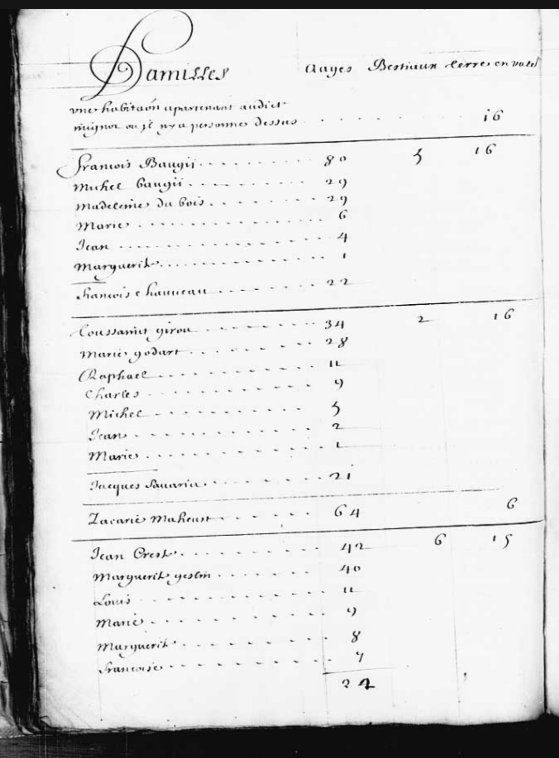 Familles Aages Bestiaux terre en valer
une habitaon apartenant audict
mignot ou jl ny a personne dessus 16
francois Baugis 80 5 16
michel baugis 29
madeleine du bois 29
Marie 6
Jean 4
Marguerit 1
francois chauveau 22
Toussainct girou 34 2 16
Marie godart 28
Raphael 11
Charles 9
Michel 5
Jean 2
Marie 1
Jacques Savaria 21
Zacarie Maheust 64 6
Jean Crest 42 6 15
Marguerit geslin 40
Louis 11
Marie 9
Marguerit 8
francoise 7
24